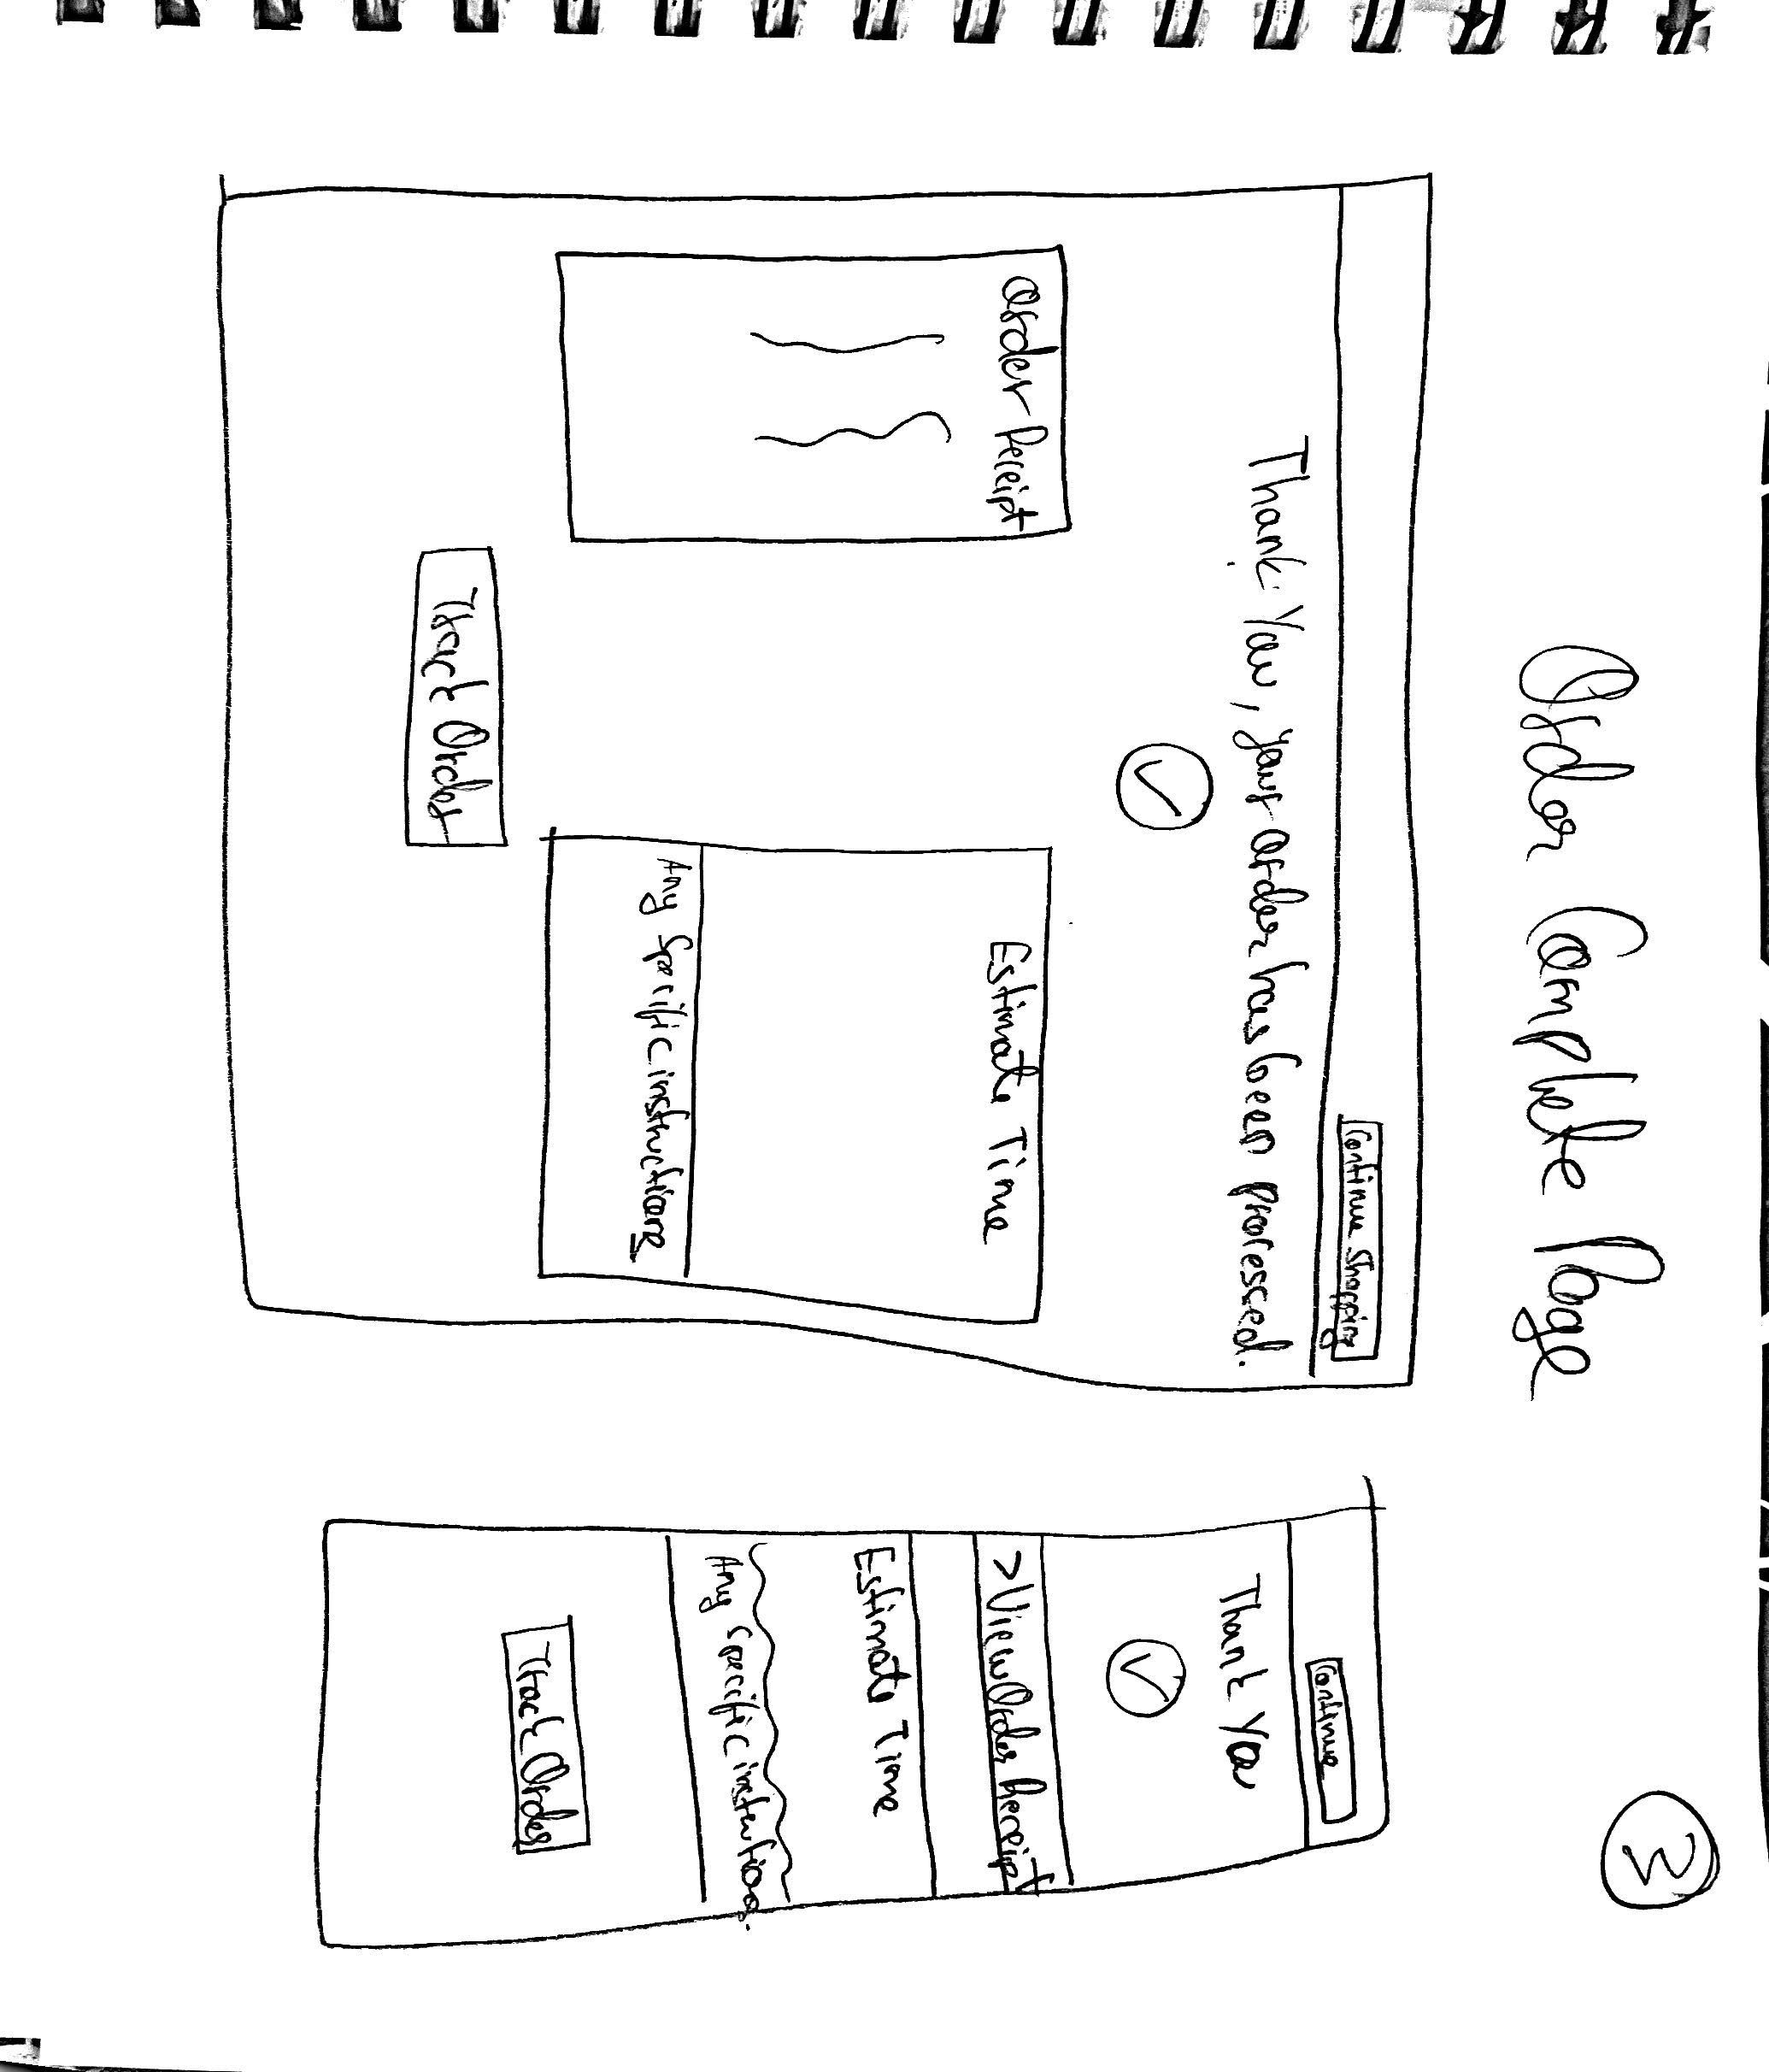 Order Complete Page
3
Continue Shopping
Thank You, your order has been processed.
Order Receipt
Estimate Time
Any Specific instructions
Track Order
Continue
Thank You
>View Order Receipt
Estimate Time
Any specific instructions.
Track Order